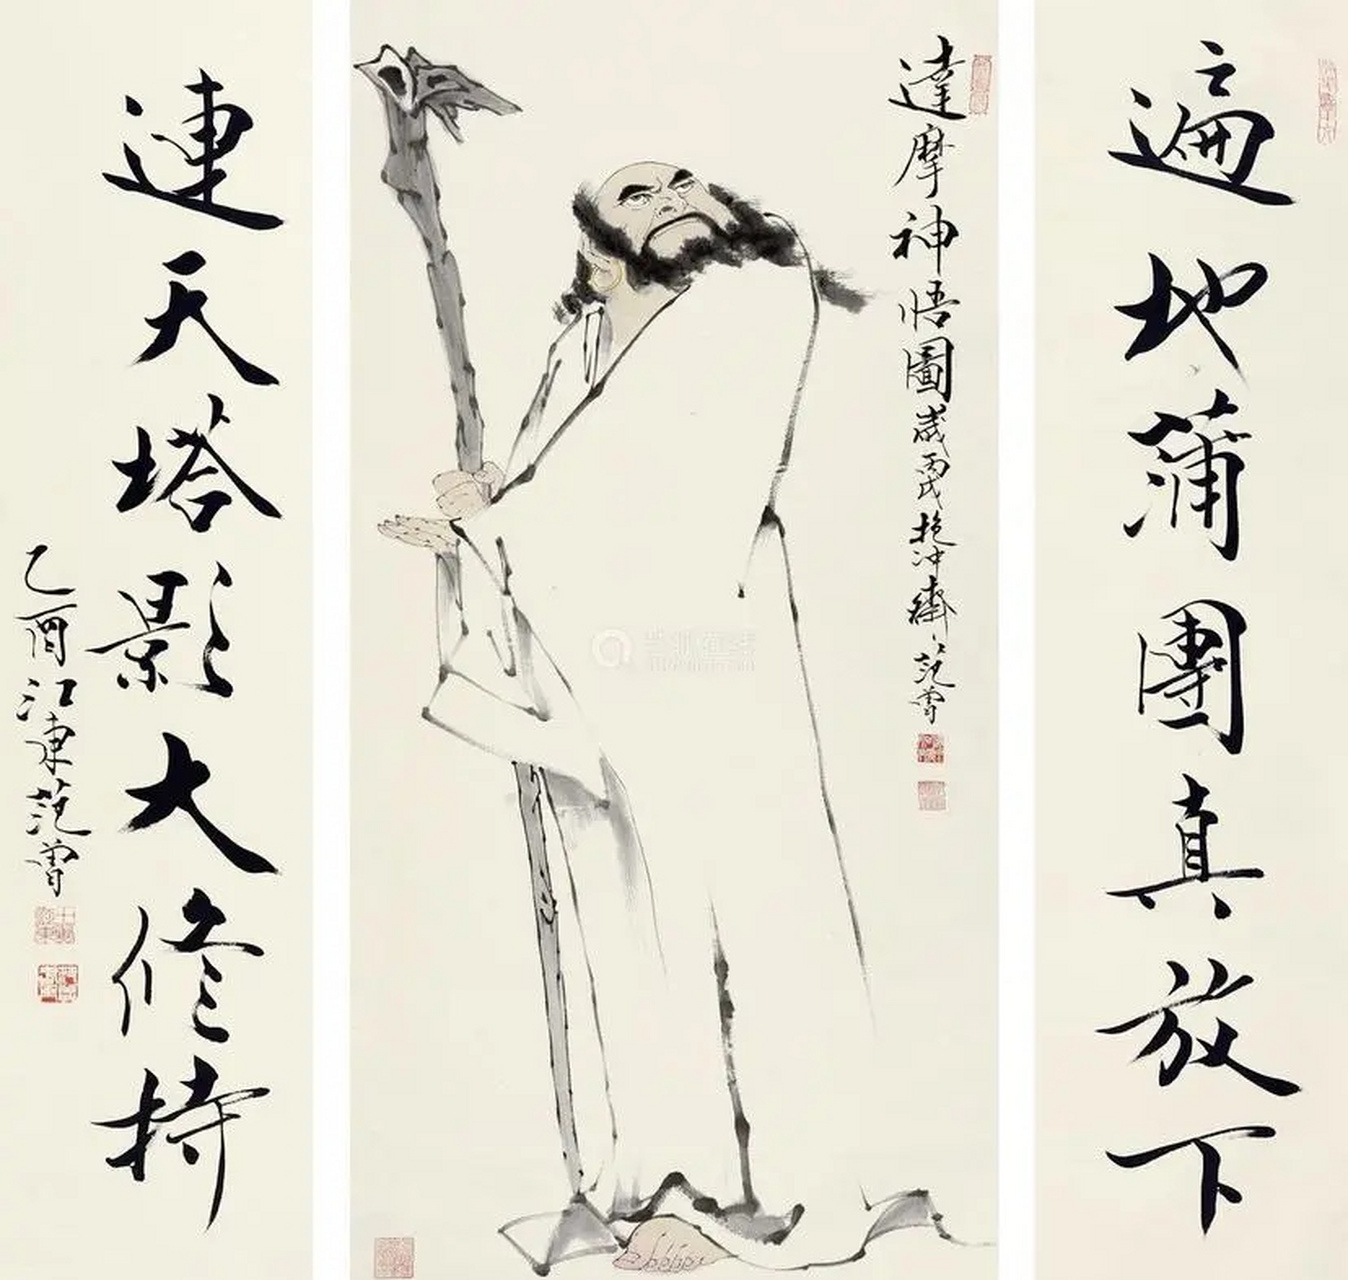 遍地蒲團真放下
達摩神悟圖
歲丙戌抱沖齋范曾
連天塔影大修持
乙酉江東范曾